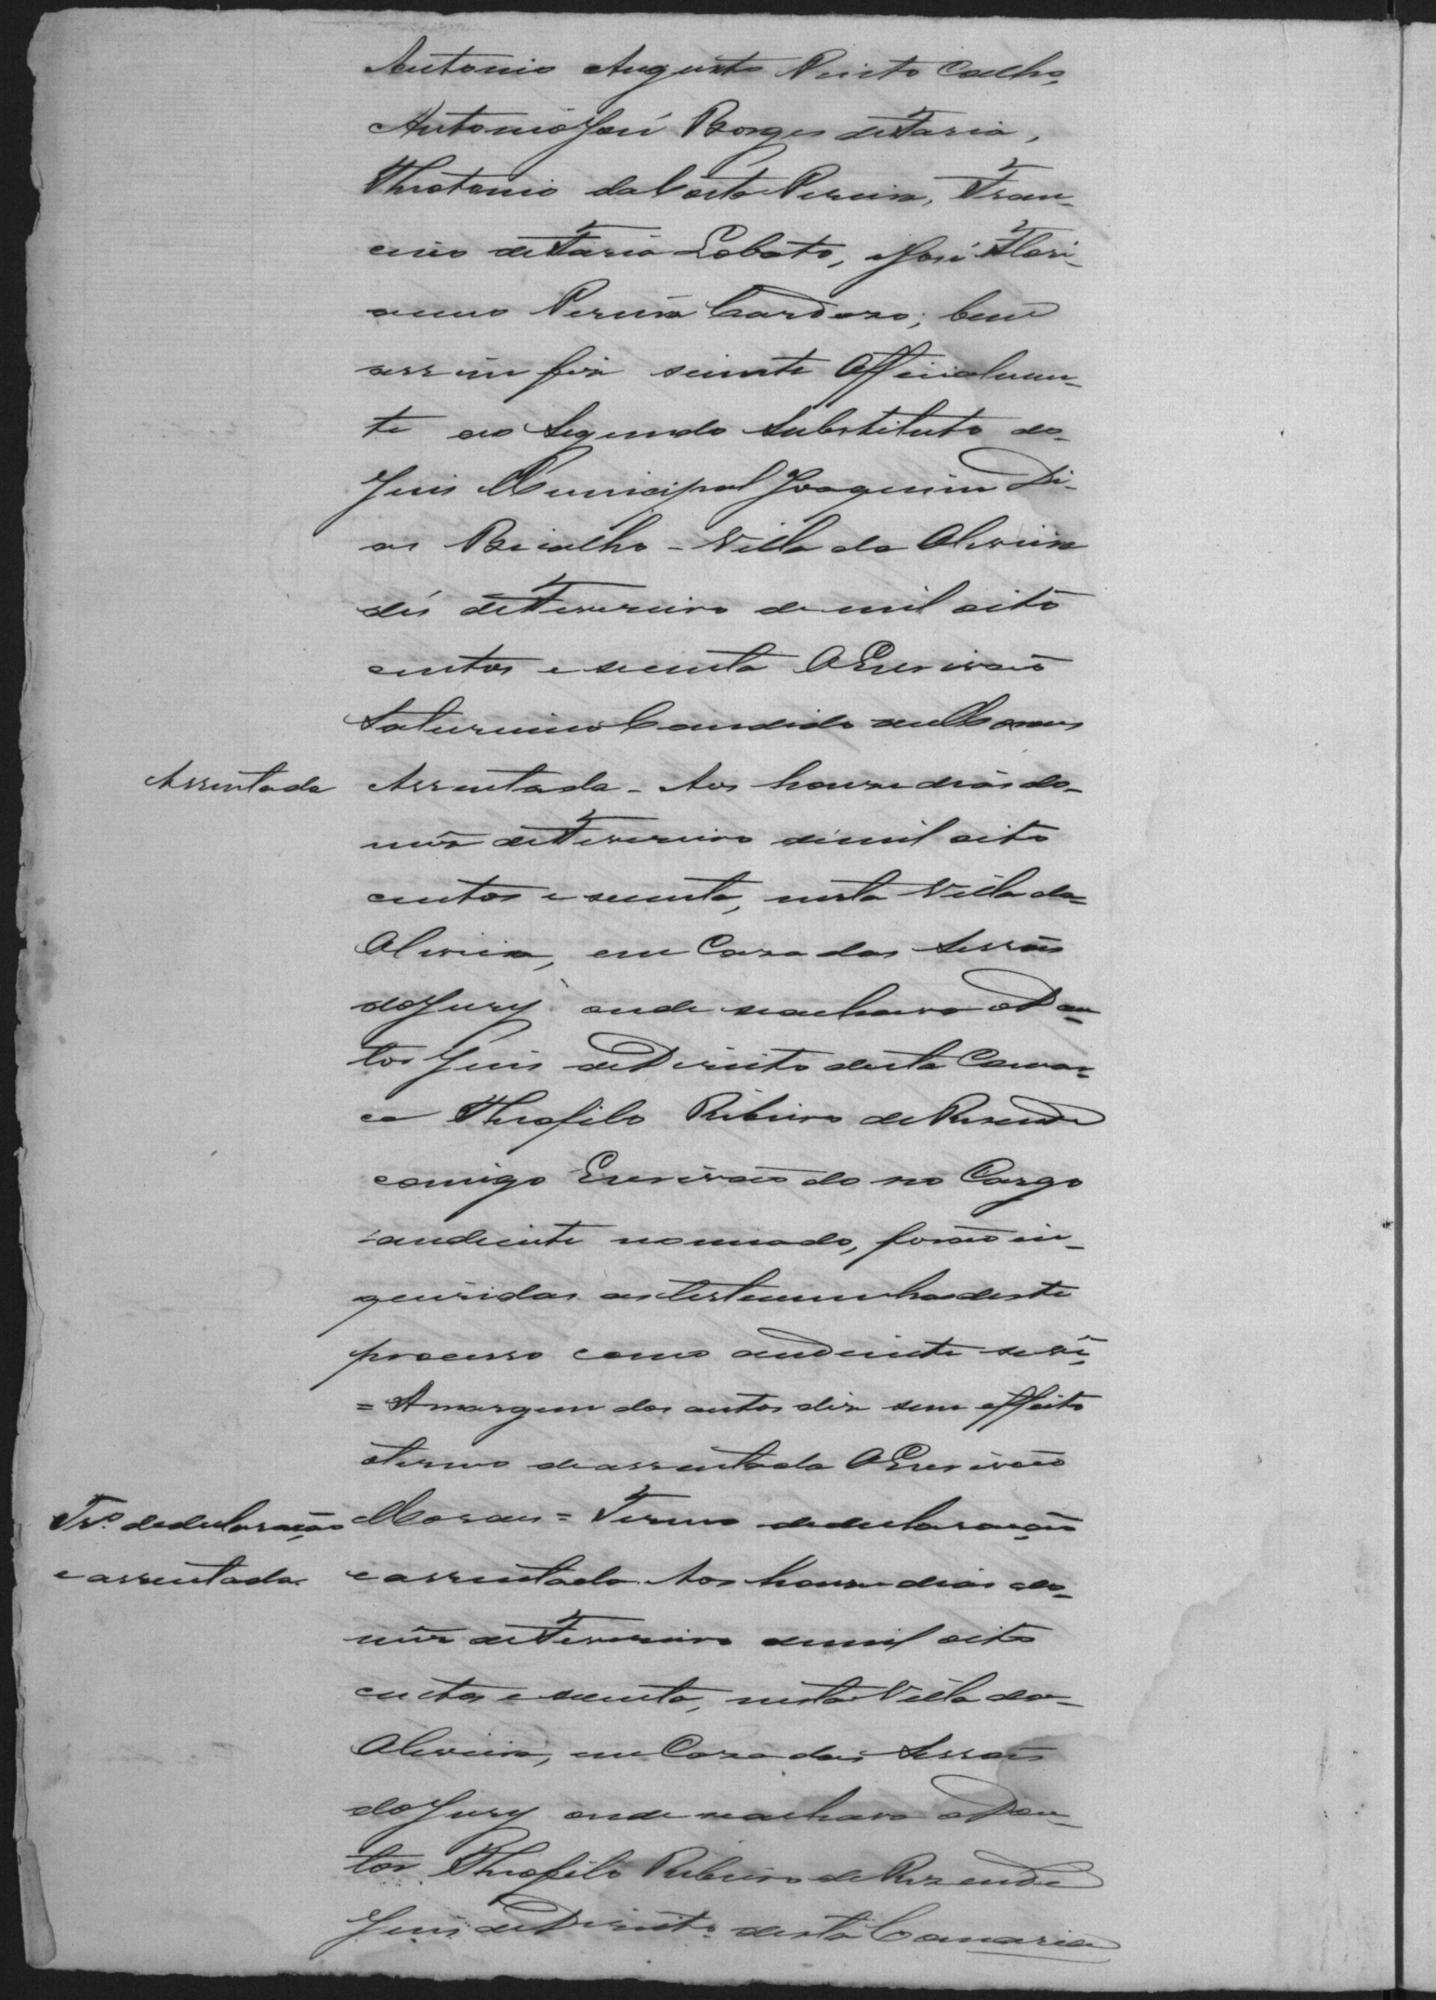 Antonio Augusto Pinto Coelho,
Antonio José Borges de Faria,
Theotonio da Costa Pereira, Fran-
cisco de Faria Lobato, e José Flori-
anno Pereira Cardozo; bem
assim fiz sciente Officialmen-
te ao Segundo Substituto do
Juis Municipal Joaquim Di-
as Bicalho - Villa da Oliveira
dés de Fevereiro de mil oito
centos e secenta O Escrivaõ
Saturnino Candido de Moraes
Assentada
Assentada - Aos honze dias do
mês de Fevereiro de mil oito
centos e secenta, nesta Villa da
Oliveira, em Caza das Sessoẽs
do Jury onde se achava o Dou
tor Juis de Direito desta Comar-
ca Theofilo Ribeiro de Resende
comigo Escrivaõ do seo Cargo
eaudiente nomeado, foraõ in-
queridas as testemunhas deste
processo como audiente se vê,
= A margem dos autos diz sem effeito
o termo de assentada O Escrivaõ
Trº. de declaraçaõ
e assentada.
Moraes = Termo de declaraçaõ
e assentada. Aos honze dias do
mês de Fevereiro de mil oito
centos e secenta, nesta Villa da
Oliveira, em Caza das Sessoẽs
do Jury onde se achava o Dou-
tor Theofilo Ribeiro de Rezende
Juis de Direito desta Comarca